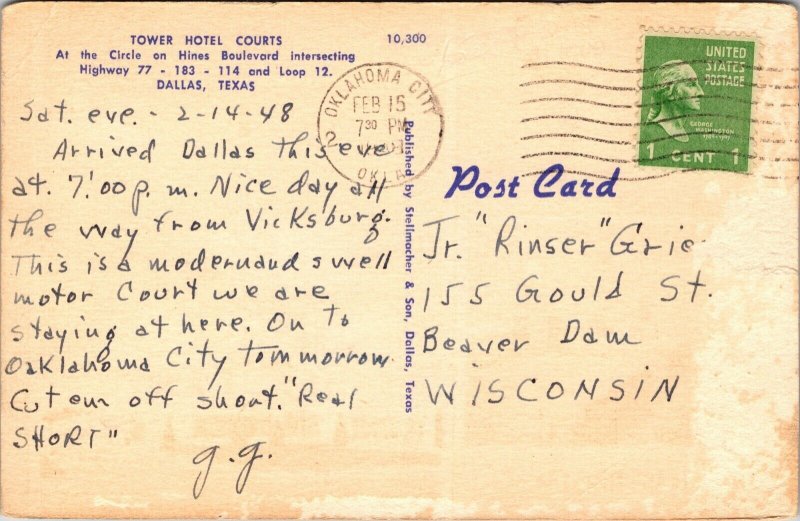 TOWER HOTEL COURTS
At the Circle on Hines Boulevard intersecting
Highway 77 - 183 - 114 and Loop 12.
DALLAS, TEXAS
10,300
Sat. eve. - 2-14-48
Arrived Dallas this eve
at 7:00 p.m. Nice day all
the way from Vicksburg.
This is a modern and swell
motor court we are
staying at here. On To
Oaklahoma City Tommorrow
Cut em off short. "Real
SHORT"
g.g.
Published by Stellmacher & Son, Dallas, Texas
OKLAHOMA CITY
FEB 15
7 30 PM
OKLA
2
UNITED
STATES
POSTAGE
GEORGE
WASHINGTON
1 CENT 1
Post Card
Jr. "Rinser" Grie
155 Gould St.
Beaver Dam
WISCONSIN